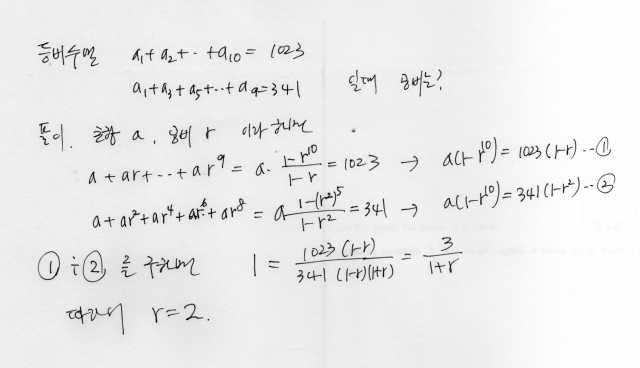 등비수열 a₁+a₂+‥+a₁₀= 1023
a₁+a₃+a₅+‥+a₉=341 일때 공비는?
풀이. 초항 a, 공비 r 이라 하면
a+ar+‥+ar⁹ = a· (1-r¹⁰)/(1-r) = 1023 → a(1-r¹⁰)= 1023(1-r) ‥①
a+ar²+ar⁴+ar⁶+ar⁸ = a (1-(r²)⁵)/(1-r²) = 341 → a(1-r¹⁰)= 341(1-r²)‥②
①÷② 를 구하면 1 = (1023 (1-r))/(341 (1-r)(1+r)) = 3/(1+r)
따라서 r=2.